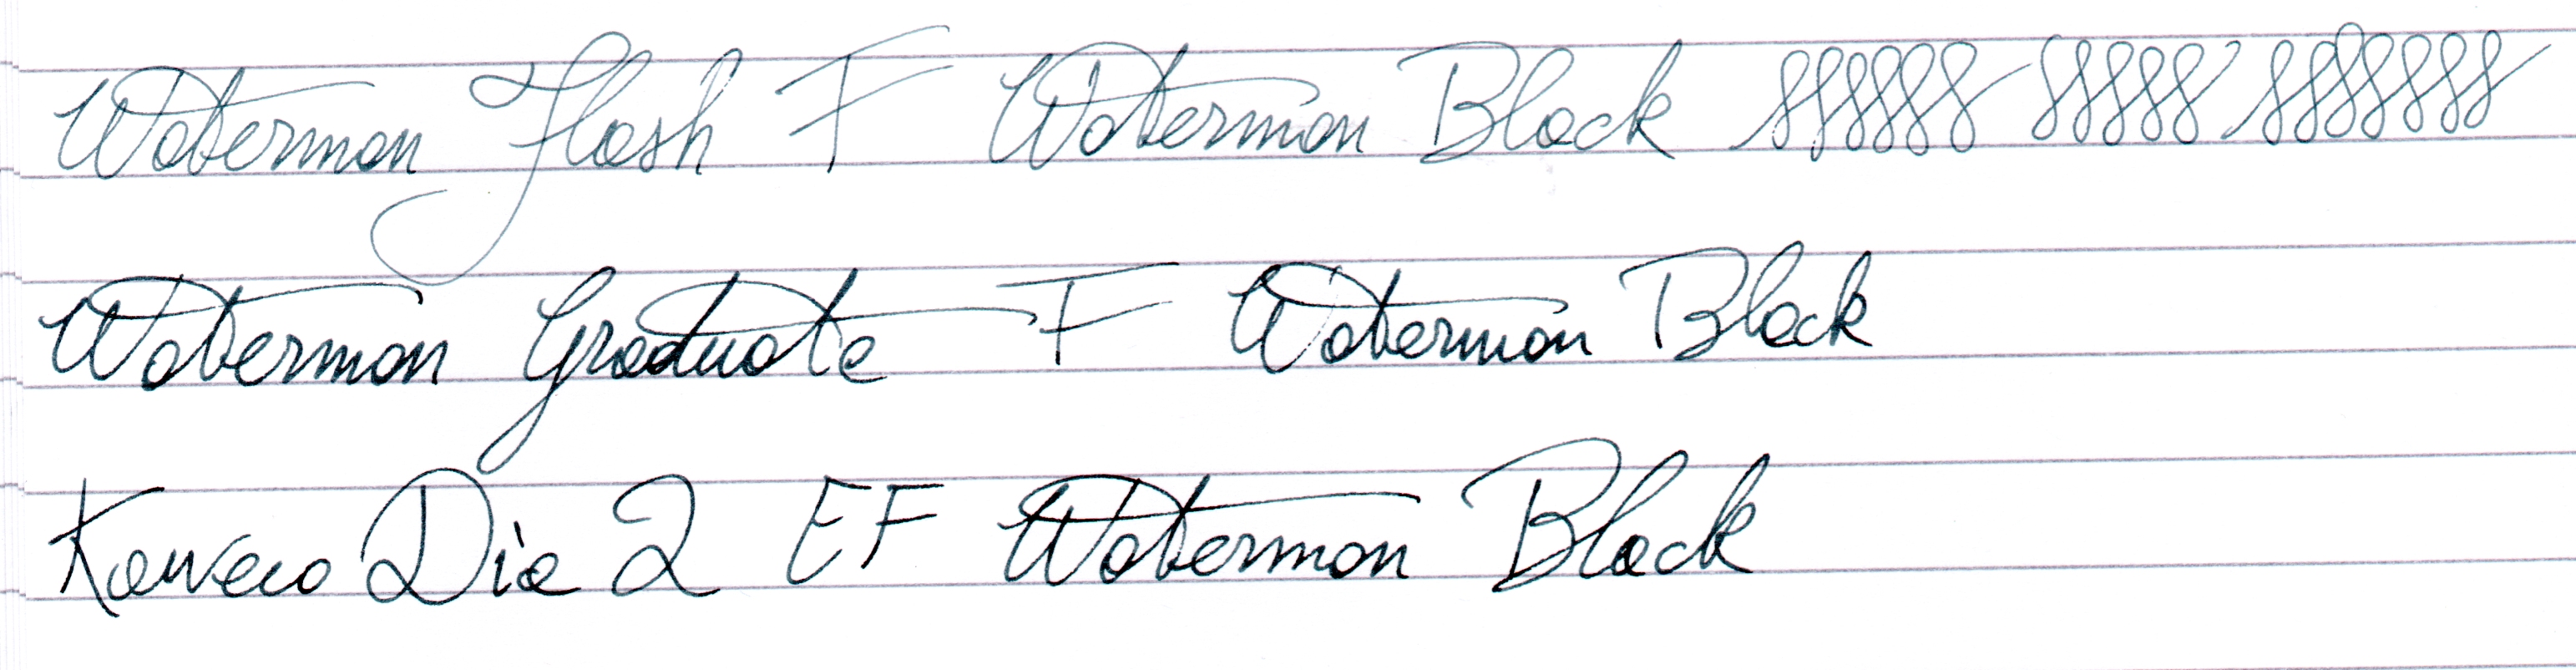 Waterman Flash F Waterman Black
Waterman Graduate F Waterman Black
Kaweco Dia 2 EF Waterman Black